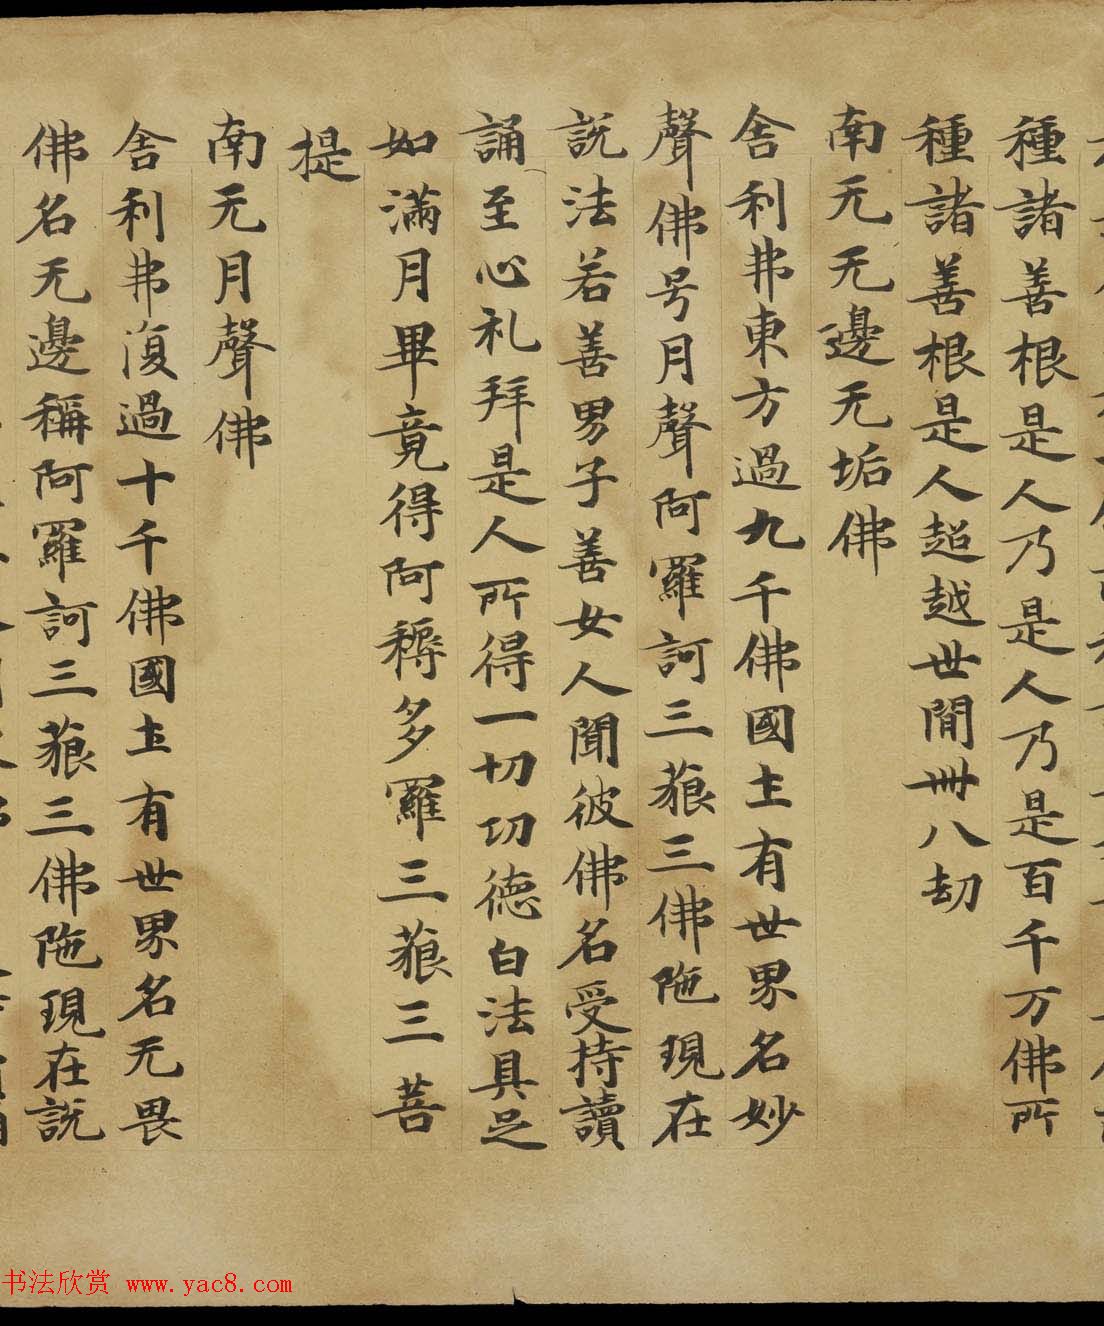 種諸善根是人乃是人乃是百千万佛所
種諸善根是人超越世間卌八劫
南无无邊无垢佛
舍利弗東方過九千佛國土有世界名妙
聲佛号月聲阿羅訶三藐三佛陁現在
説法若善男子善女人聞彼佛名受持讀
誦至心礼拜是人所得一切功德白法具足
如滿月畢竟得阿耨多羅三藐三菩
提
南无月聲佛
舍利弗復過十千佛國土有世界名无畏
佛名无邊稱阿羅訶三藐三佛陁現在説
书法欣赏 www.yac8.com